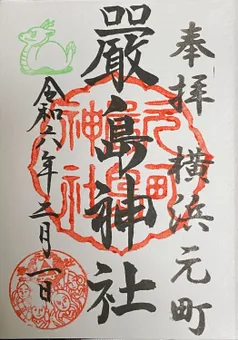 奉拝 横浜元町
嚴島神社
令和六年二月一日
元町嚴島神社